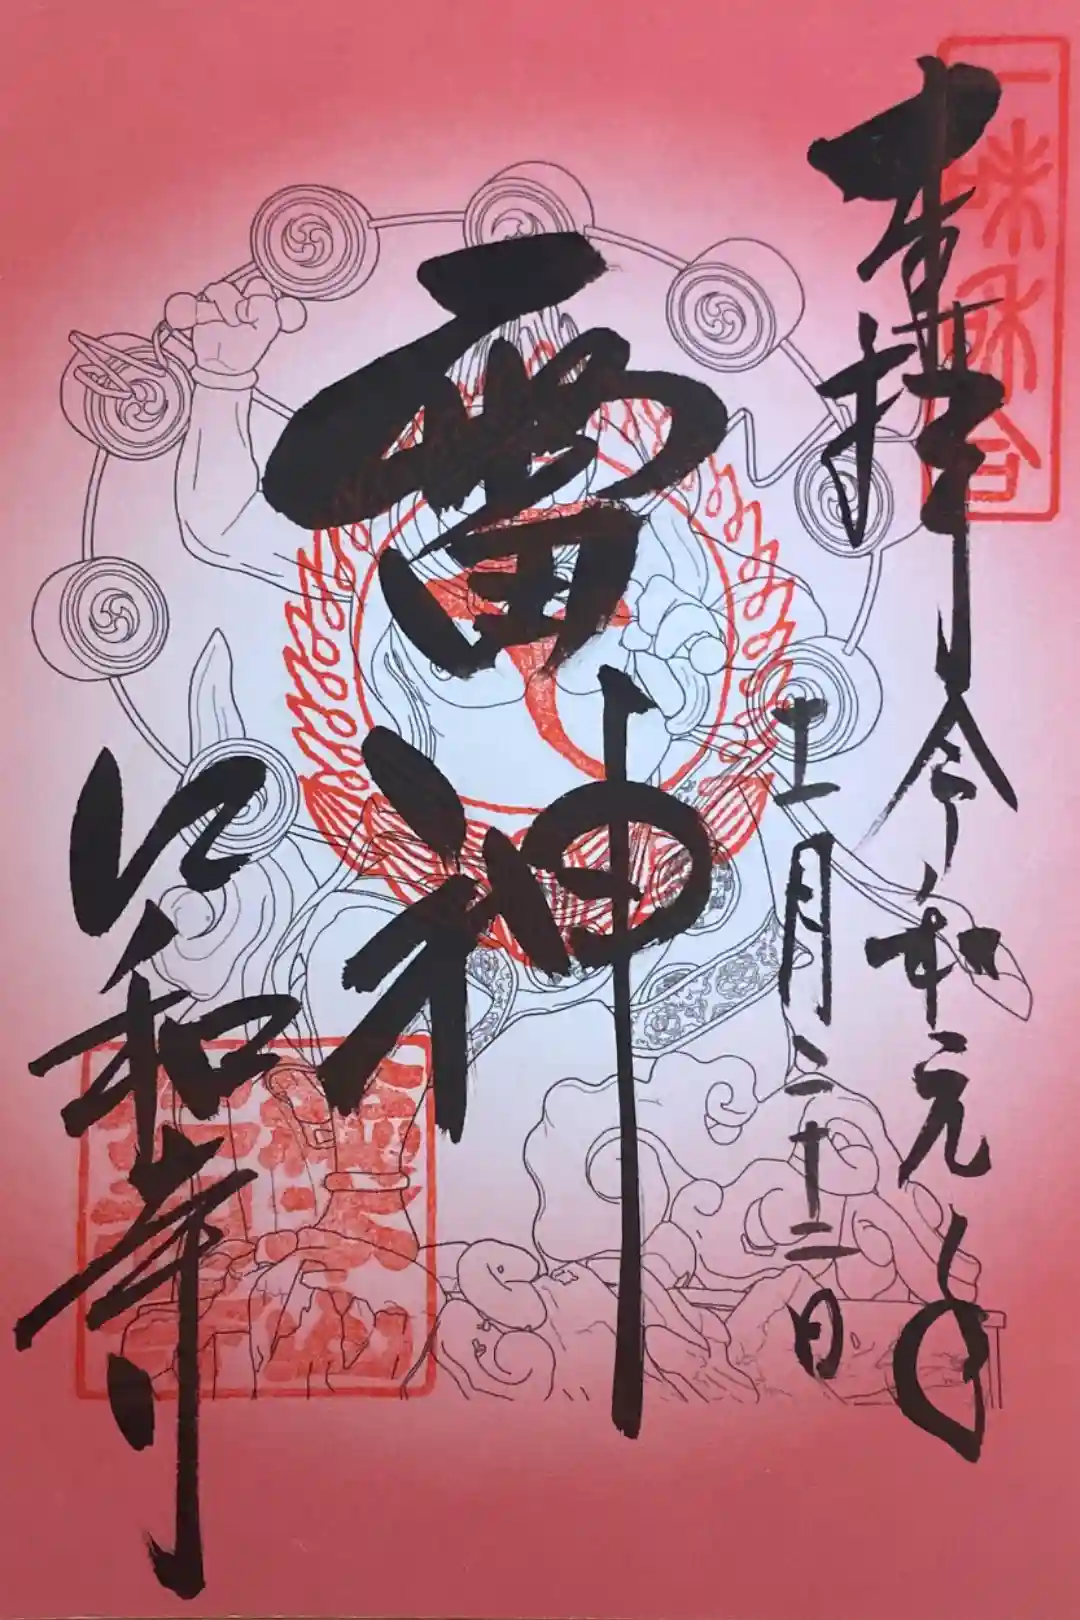 奉拝 令和元年
十一月二十二日
雷神
一味和合